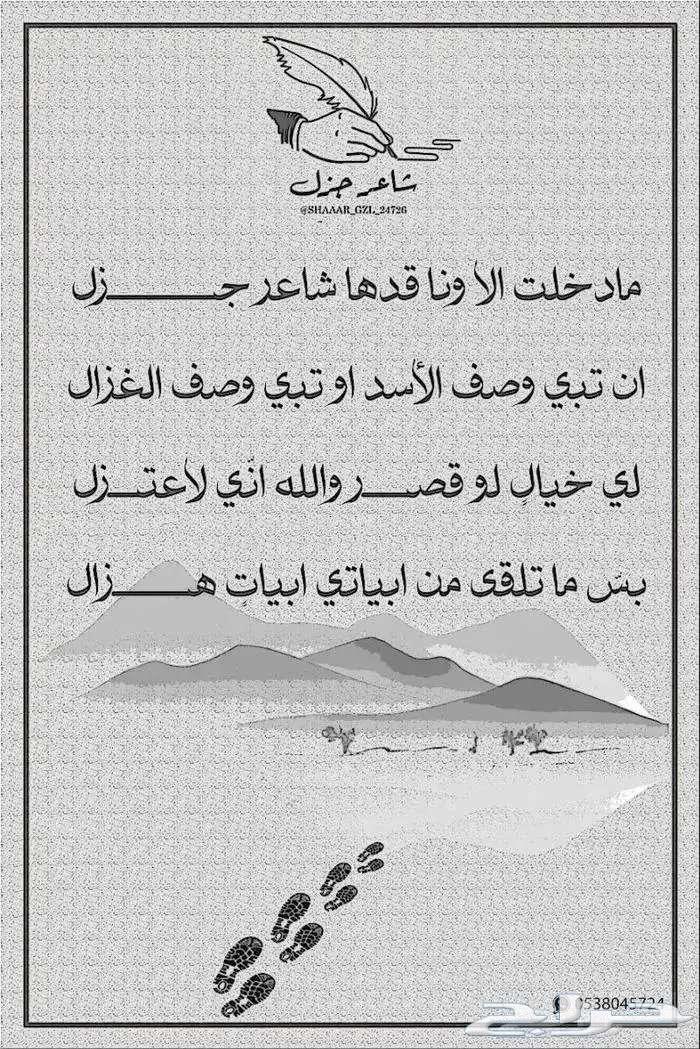 شاعر جزل
@SHAAAR_GZL_24726
مادخلت الا ونا قدها شاعر جـــــــزل
ان تبي وصف الأسد او تبي وصف الغزال
لي خيالٍ لو قصـــر والله انّي لأعتـــزل
بسّ ما تلقى من ابياتي ابياتٍ هـــــزال
0538045724
حراج